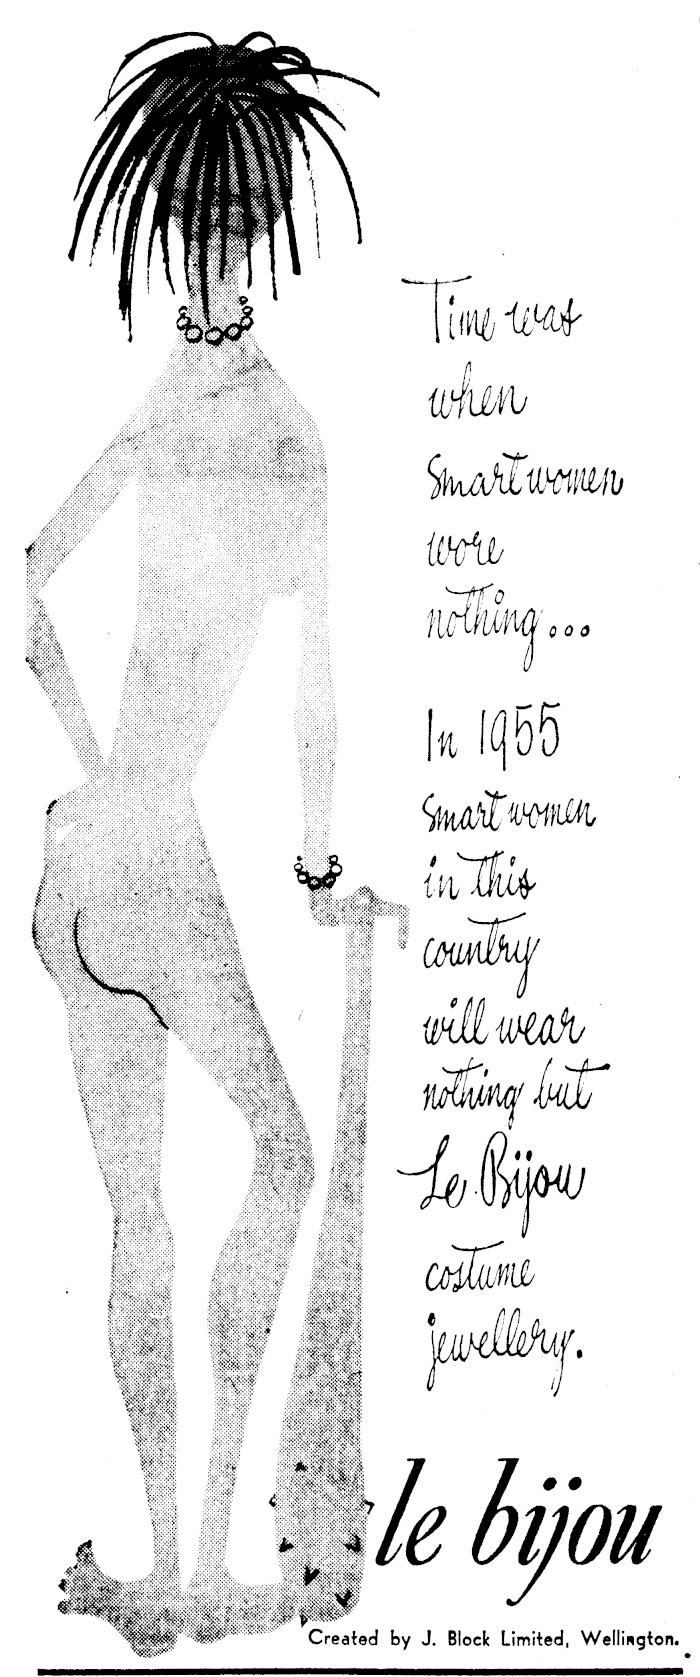 Time was
when
smart women
wore
nothing...
In 1955
smart women
in this
country
will wear
nothing but
Le Bijou
costume
jewellery.
le bijou
Created by J. Block Limited, Wellington.